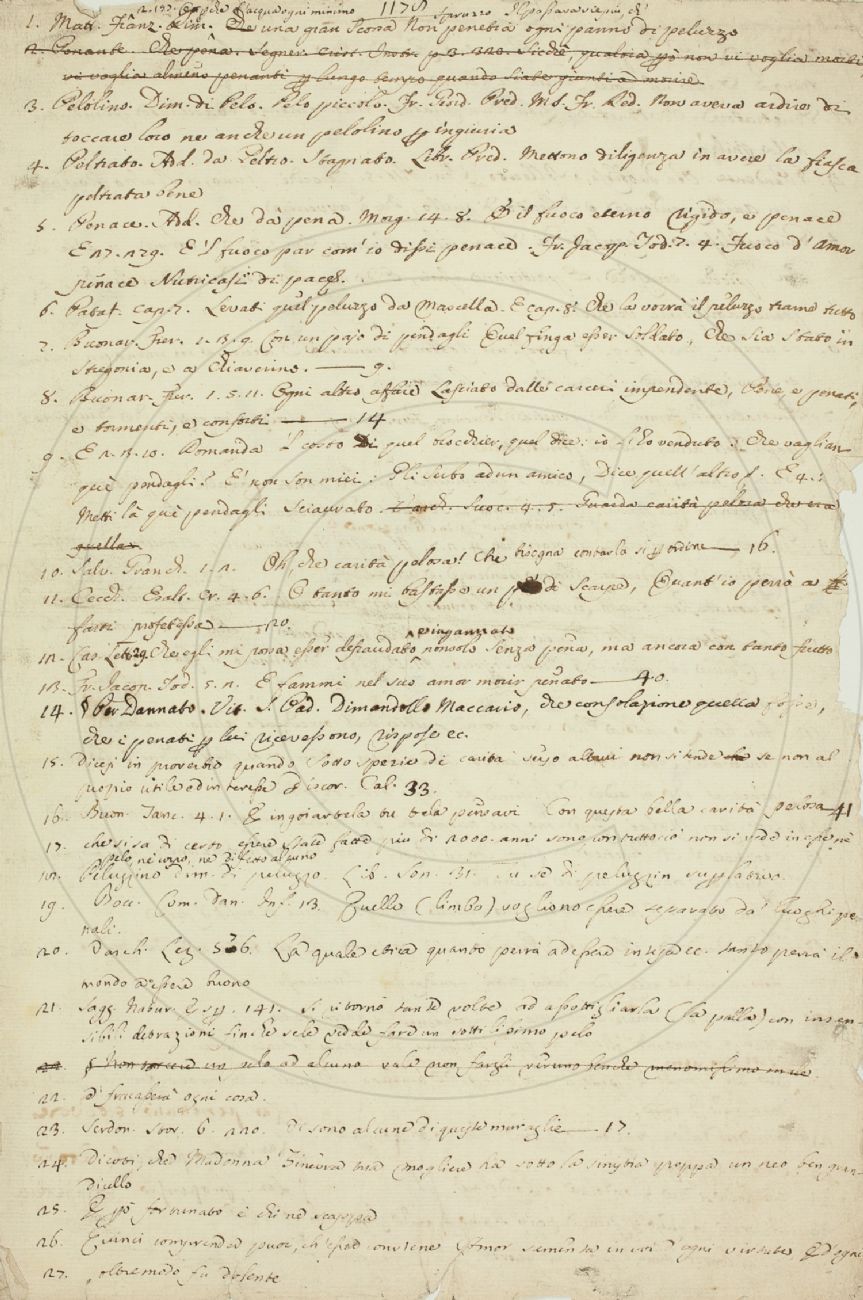 1178
1. Matt. Franz. Rim. Che una gran scossa Non penetra ogni panno di peluzzo
2. Penante. Che pena. Segner. Crist. Instr. p. 3. 320. Sicchè, qualora non vi voglia morti
vi voglia almeno penanti lungo tempo quando siate giunti a morire
3. Pelolino. Dim. di Pelo. Pelo piccolo. Fr. Giord. Pred. MS. Fr. Red. Non aveva ardire di
toccare loro ne anche un pelolino ingiuria
4. Peltrato. Add. da Peltro. Stagnato. Libr. Pred. Mettono diligenza in avere la fiasca
peltrata bene
5. Penace. Add. Che dà pena. Morg. 14. 8. il fuoco eterno rigido, e penace
E 27. 129. E 'l fuoco par com' io dissi penace. Fr. Jacop. Tod. 7. 4. Fuoco d' amor
penace Nutricasi di pace.
6. Pataf. cap. 7. Levati quel peluzzo da Mascella. E cap. 8. Che la vorrà il peluzzo trame tutto
7. Buonar. Fier. 1. 3. 9. Con un pajo di pendagli Quel finga esser soldato, che sia stato in
Stregonia, e a Chiaverino. — 9.
8. Buonar. Fier. 1. 5. 11. Ogni altro affare Lasciato dalle carceri impendente, e penati,
e tormenti, e conforti — 14
9. E 2. 3. 10. Domanda 'l costo di quel quel dice: io l' ho venduto: che vaglian
quei pendagli? E' non son miei: Gli serbo ad un amico, Dice quell' altro. E 4.
Metti là quei pendagli Sciaurato. Suoc. 4. 5. Guarda carità pelosa ch' era
quella
10. Salv. Granch. 1. 2. Oh, che carità pelosa! Che bisogna contarla ordine — 16.
11. Cecch. Esalt. Cr. 4. 6. E tanto mi bastasse un di scarpe, Quant' io penrò a
farti professa — 20.
ringanzato
12. Car. Lett. 29. Che egli mi possa esser defraudato nonsolo senza pena, ma ancora con tanto frutto
13. Fr. Jacop. Tod. 5. 2. E fammi nel suo amor morir penato — 40.
14. § Per Dannato. Vit. S. Pad. Dimandollo Maccario, che consolazione quella fosse,
che i penati lui ricevessono, rispose ec.
15. Dicesi in proverbio quando sotto spezie di carità verso altrui non si tende che se non al
propio utile od interesse Discor. Cal. 33.
16. Buon. Tanc. 4. 1. E ingoiartela tu te la pensavi Con questa bella carità pelosa — 41
17. che si sa di certo essere state fatte più di 2000. anni sono con tuttociò non si vede in esse nè
pelo, nè corpo, nè difetto alcuno
18. Peluzzino dim. di peluzzo. Lib. Son. 31. Tu se' di peluzzin
19. Bocc. Com. Dan. Inf. 13. Quello (limbo) vogliono essere separato da' luoghi pe-
nali.
20. Varch. Lez. 536. La quale etica quanto penrà ad essere intesa ec. tanto penrà il
mondo a essere buono
21. Sagg. Natur. Esp. 141. Si ritornò tante volte ad assottigliarla (la palla) con insen-
sibili detrazioni finchè se le vedde fare un sottilissimo pelo
22. § Non torcere un pelo ad alcuno vale non fargli veruno benchè menomissimo male
22. d' ogni cosa.
23. Serdon. Stor. 6. 220. Vi sono alcune di queste muraglie — 17.
24. Dicoti, che Madonna Ginevra tua mogliere ha sotto la sinistra poppa un neo ben gran-
dicello
25. E fortunato è chi ne scappa
26. Quinci comprender puoi, ch' esser conviene Amor sementa in voi d' ogni virtute, E d' ogni
27. oltremodo fu dolente